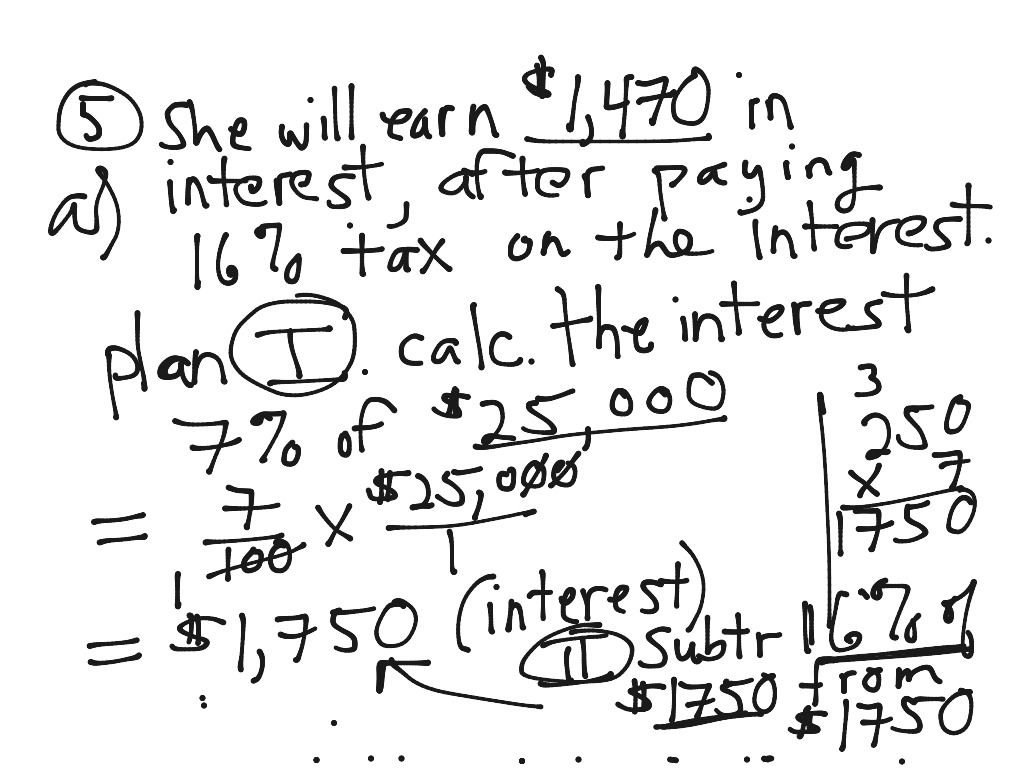 5 She will earn $1,470 in
a) interest, after paying
16% tax on the interest.
plan I. calc. the interest
7% of $25,000
= 7/100 x $25,000/1
1
= $1,750 (interest)
II Subtr 16% of
$1750 from
$1750
3
250
x 7
1750